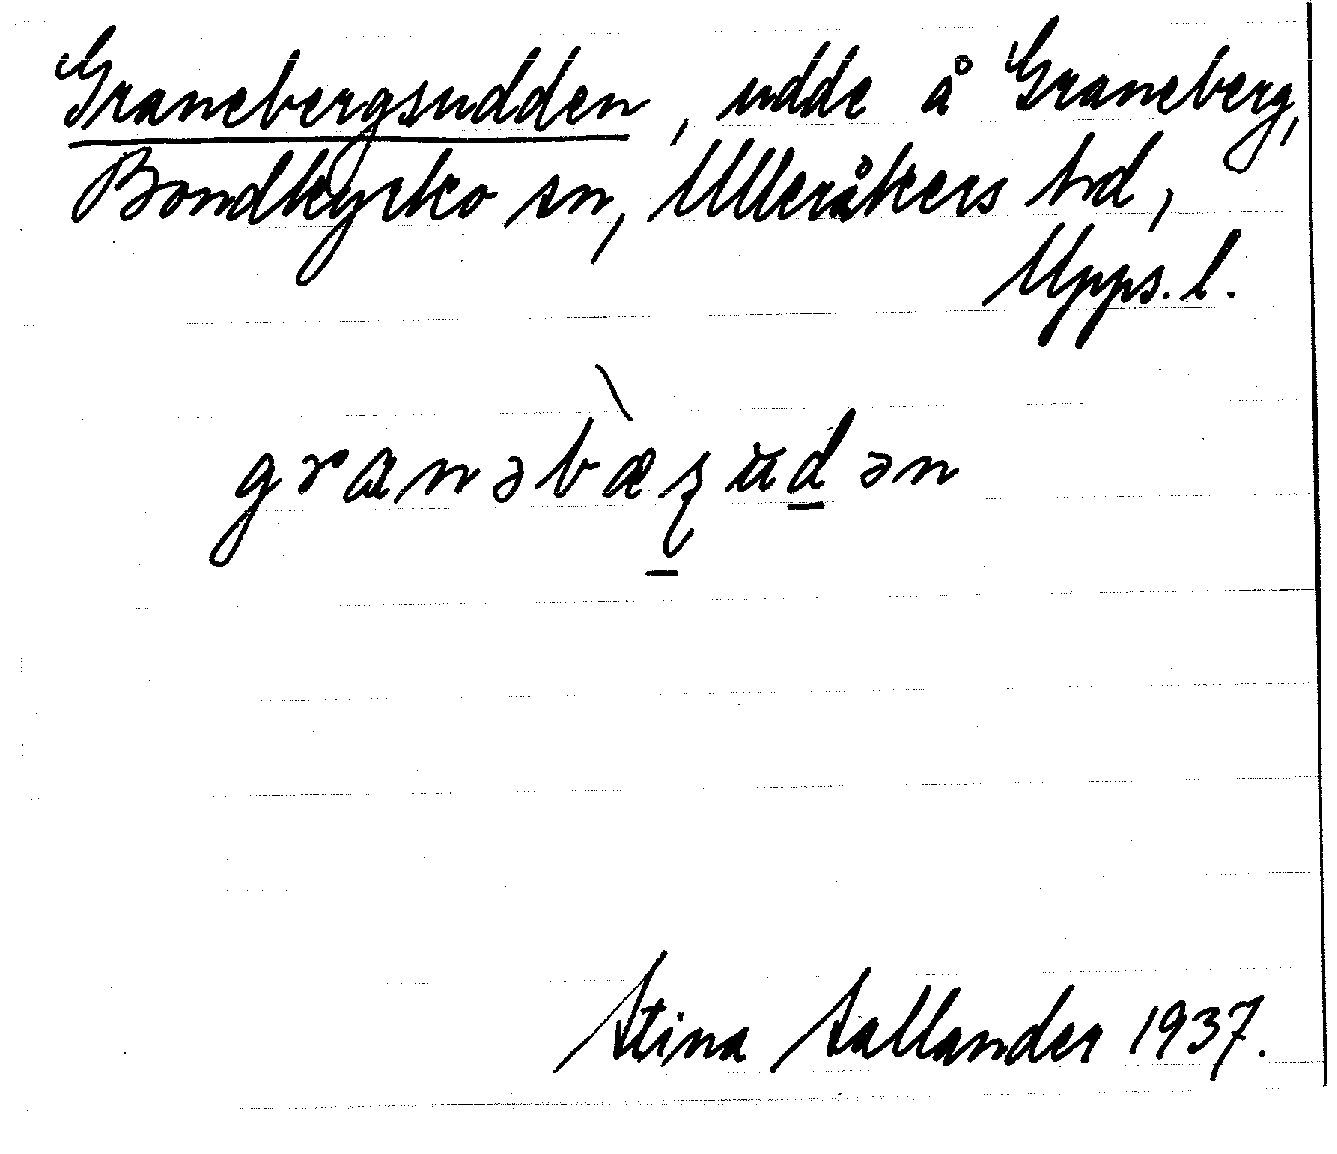 Granebergsudden, udde å Graneberg,
Bondkyrko sn, Ulleråkers hd,
Upps. l.
granəbæ̀ʂud̲ən
Stina Sallander 1937.